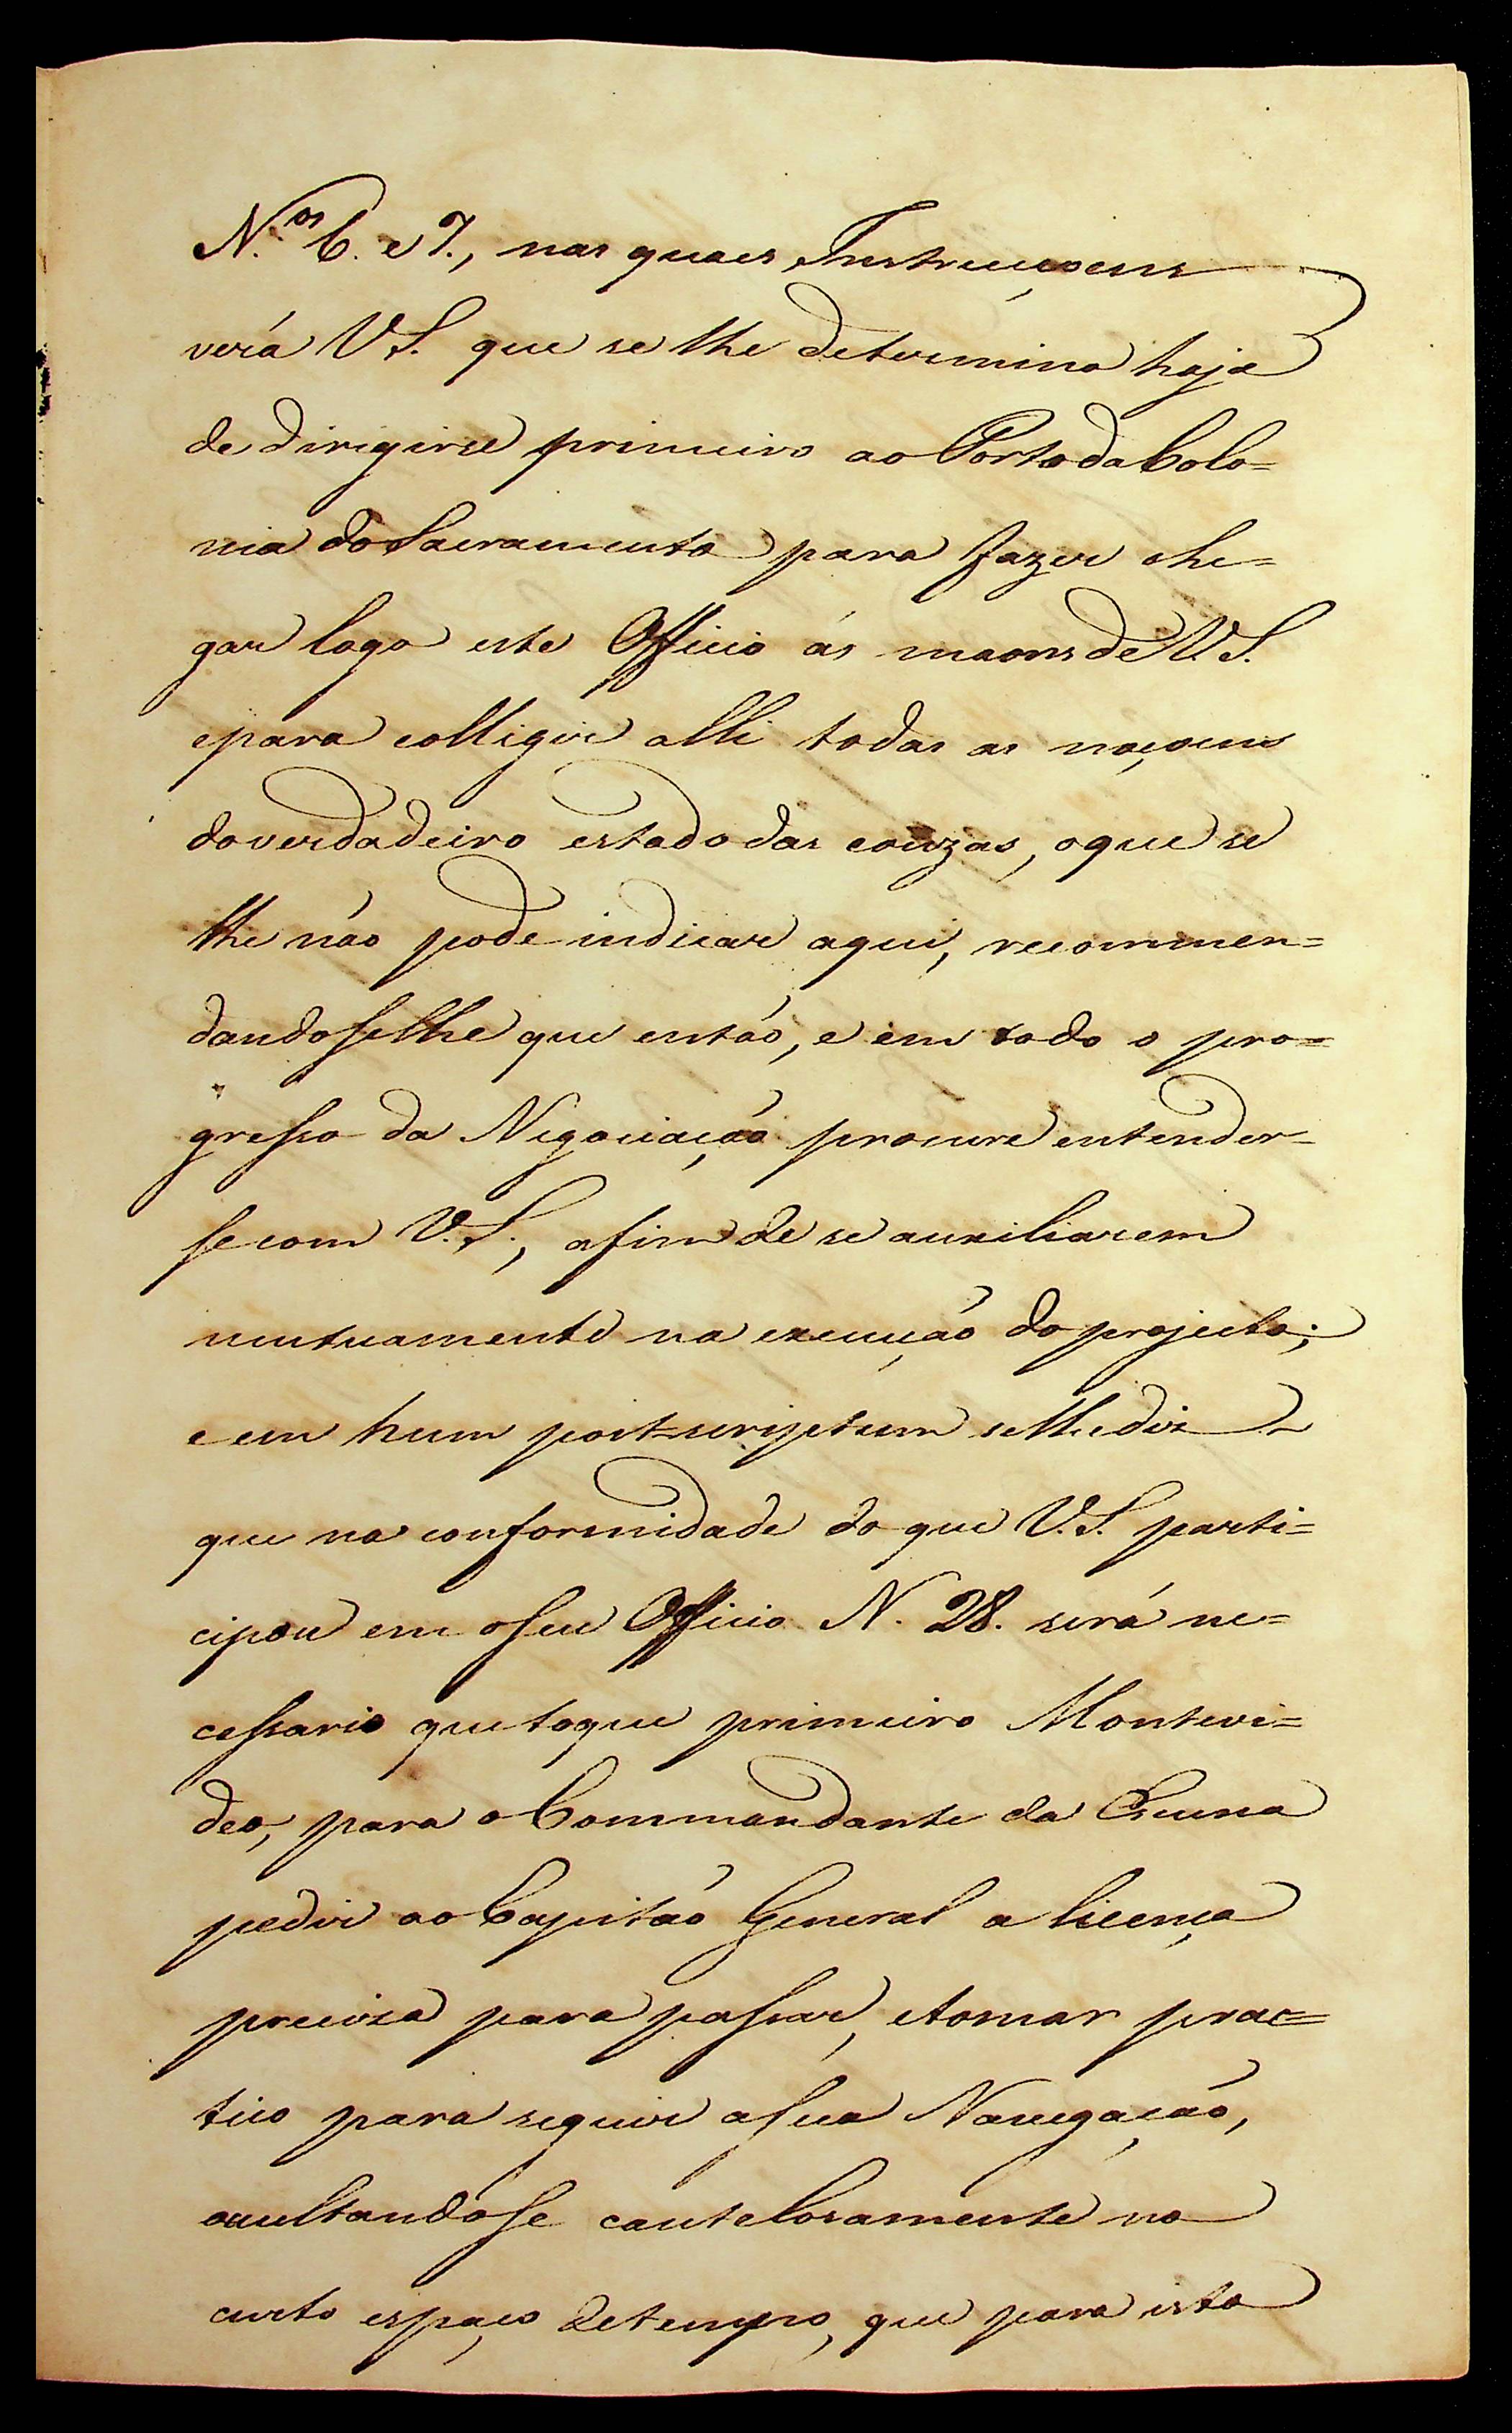 N.os 6. e 7., nas quaes Instrucçoens
verá V S. que se lhe determina haja
de dirigirse primeiro ao Porto da Colo=
nia do Sacramento para fazer che=
gar logo este Officio ás maons de V. S.
e para colligir alli todas as noçoens
do verdadeiro estado das couzas, o que se
lhe não pode indicar aqui, recommen=
dandoselhe que então, e em todo o pro=
gresso da Negociação procure entender=
se com V. S., afim de se auxiliarem
mutuamente na execução do projecto;
e em hum post=scriptum se lhe diz
que na conformidade do que V. S. parti=
cipou em o seu Officio N. 28. será ne=
cessario que toque primeiro Montevi=
deo, para o Commandante da Escuna
pedir ao Capitão General a licença
preciza para passar, e tomar prac=
tico para seguir a sua Navegação,
occultandose cautelosamente no
curto espaço de tempo, que para isto